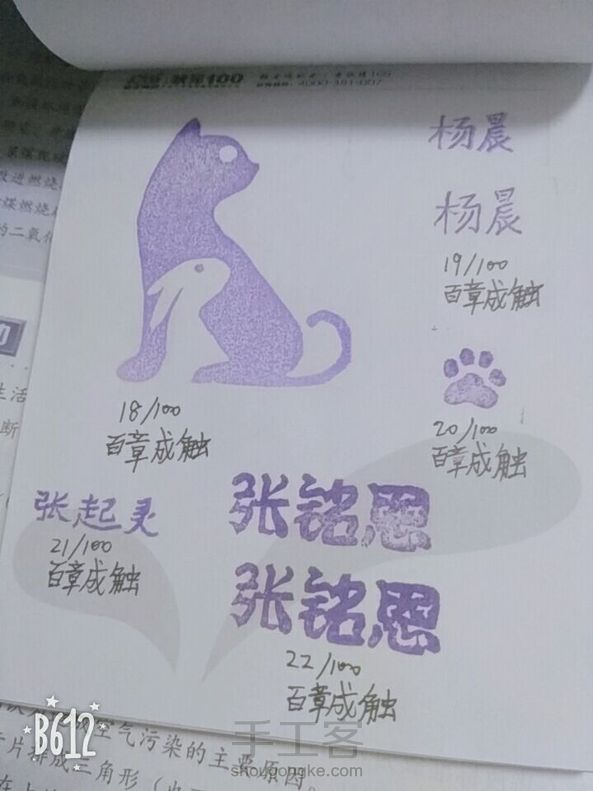 杨晨
杨晨
19/100
百章成触
18/100
百章成触
20/100
百章成触
张起灵
21/100
百章成触
张铭恩
张铭恩
22/100
百章成触
空气污染的主要原因。
片排成三角形
B612
手工客
shougongke.com